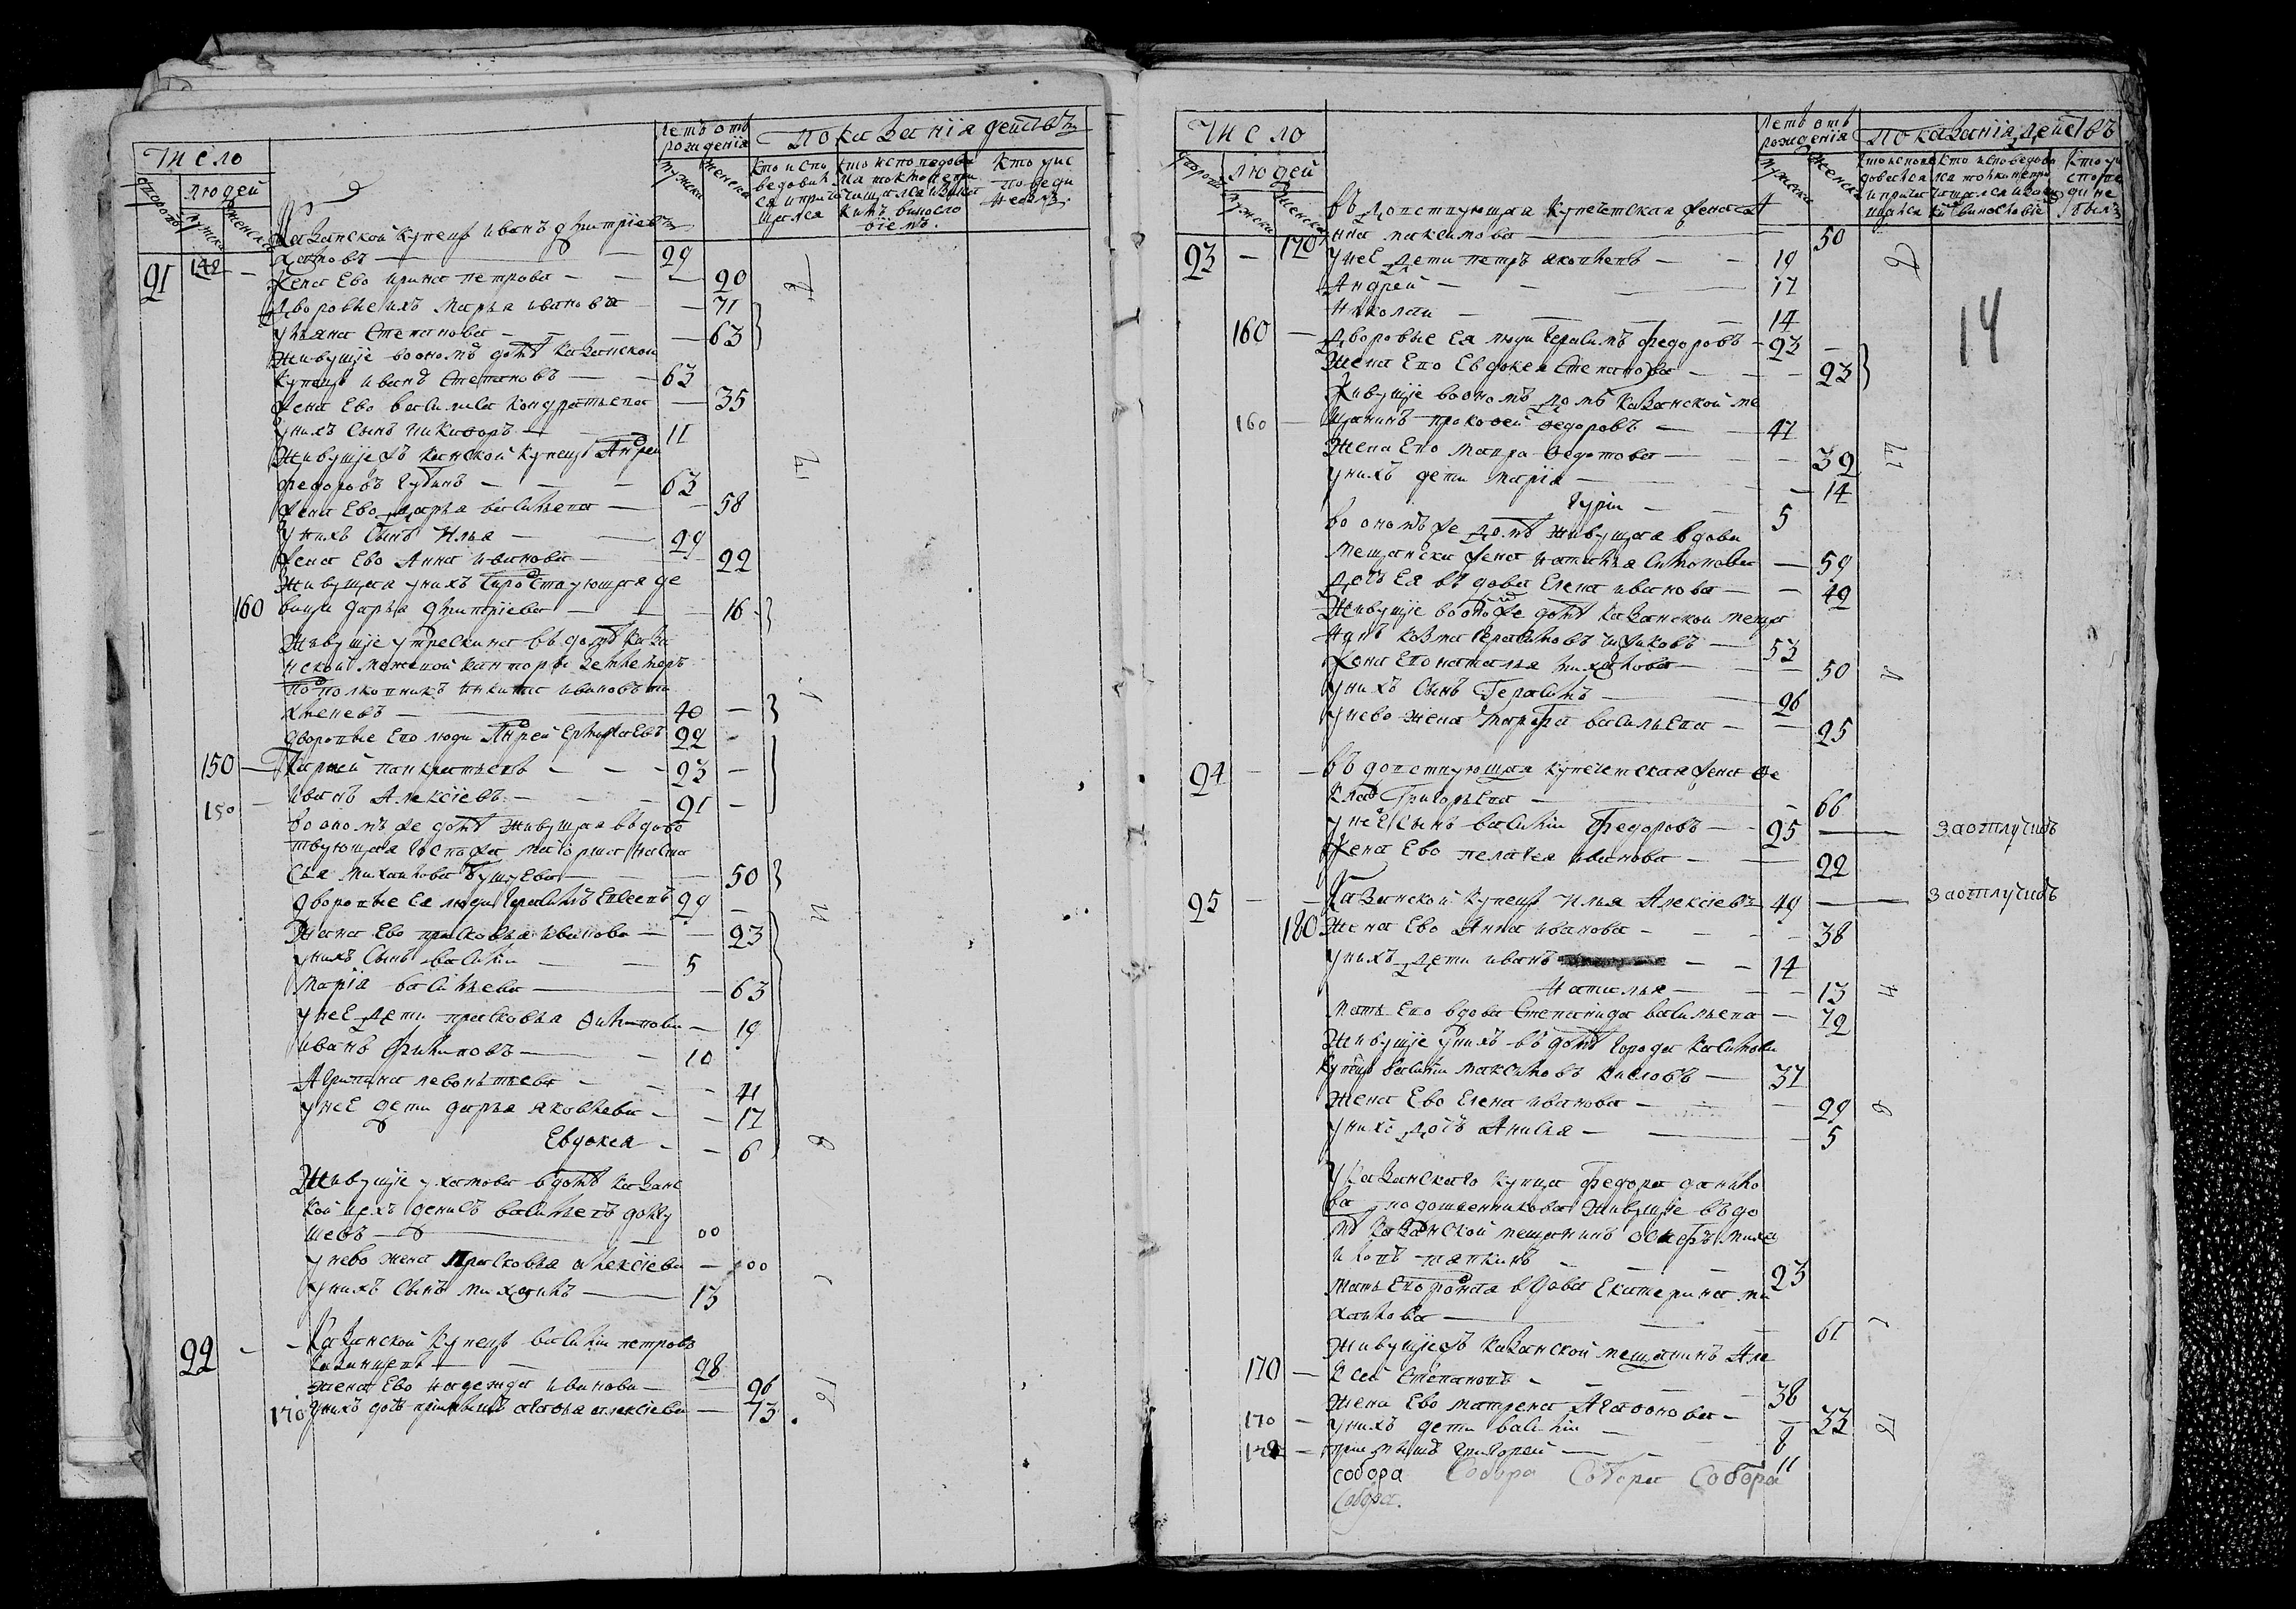 Число
людей
дворовъ
мужска
женска
летъ отъ
рождения
мужска
женска
Показания действъ
кто испо
ведовал
ся и прича
щался
кто исповедова
лся токмо а не при
чащался и за
какимъ виносло
виемъ
кто у ис
поведи
не былъ
Казанской купецъ иванъ дмитриевъ
хатовъ — 29
91 142 —
жена ево ирина петрова — 20
дворовые ихъ марья иванова — 71
ульяна степанова — 63
живущие во ономъ доме казанской
купецъ иванъ степановъ — 63
жена ево василиса кондратьева — 35
у нихъ сынъ никифоръ — 11
живущие жъ казанской купецъ андрей
федоровъ губинъ — 63
жена ево дарья васильева — 58
у нихъ сынъ илья — 29
жена ево анна иванова — 22
живущая у нихъ сиротствующая де
160 вица дарья дмитриева — 16
живущие у трескина въ доме каза
нской межевой канторы землемеръ
подполковникъ никита ивановъ
40 —
дворовые ево люди андрей 22 —
150 — карпей панкратьевъ — 23 —
150 — иванъ алексиевъ — 21 —
во ономъ же доме живущая вдовс
твующая госпожа маиорша наста
сья михаилова бушуева — 50
дворовые ея люди герасимъ евсеевъ 29 —
жена ево прасковья иванова — 23
у нихъ сынъ василии — 5
мария васильева — 63
у нее дети прасковья филипова — 19
иванъ филиповъ — 10
агрипина леонтьева — 41
у нее дети дарья яковлева — 17
евдокея — 6
живущие у хатова в доме казанс
кой цехъ денисъ васильевъ
шевъ — 00
у нево жена прасковья алексиева — 00
у нихъ сынъ михаилъ — 13
92 — — казанской купецъ василии петровъ
казанцевъ — 28
жена ево надежда иванова — 26
170 у нихъ дочь приемышъ агафья алексиева — 13
Число
людей
дворовъ
мужска
женска
летъ отъ
рождения
мужска
женска
Показания действъ
кто испове
довался
и прича
щался
кто исповедова
лся токмо а не при
чащался и за
какимъ винословие
кто у и
спове
ди не
былъ
вдовствующая купеческая жена а
93 — 170 нна максимова — 50
у нее дети петръ яковлевъ — 19
андрей — 17
николаи — 14
14
160 — дворовые ея люди герасимъ федоровъ — 23 —
жена ево евдокея степанова — 23
живущие во ономъ доме казанской ме
160 — щанинъ прокофей федоровъ — 47
жена ево мавра федотова — 39
у нихъ дети мария — 14
гурии — 5
во ономъ же доме живущая вдова
мещанска жена наталья симонова — 59
дочь ея вдова елена иванова — 42
живущие во ономъ же доме казанской меща
нинъ козма герасимовъ чижиковъ — 53
жена ево наталья михаилова — 50
у нихъ сынъ герасимъ — 26
у нево жена марфа васильева — 25
94 — — вдовствующая купеческая жена фе
кла григорьева — 66
у нее сынъ василии федоровъ — 25 — за отлучкою
жена ево пелагея иванова — 22
95 — — казанской купецъ илья алексиевъ — 49 — за отлучкою
180 жена ево анна иванова — 38
у нихъ дети иванъ — 14
наталья — 13
мать ево вдова степанида васильева — 72
живущие у нихъ въ доме города касимова
купецъ василии максимовъ кисловъ — 37
жена ево елена иванова — 29
у нихъ дочь анисья — 5
у казанскаго купца федора данило
ва подошевникова живущие въ до
ме казанской мещанинъ миха
иловъ шапкинъ — 23
мать ево родная вдова екатерина ми
хаилова — 61
живущие жъ казанской мещанинъ але
170 — ксей степановъ — 38
жена ево матрена агафонова — 33
170 — у нихъ дети василии — 8
приемышъ григорей — 11
собора Собора Собора Собора
Собора.